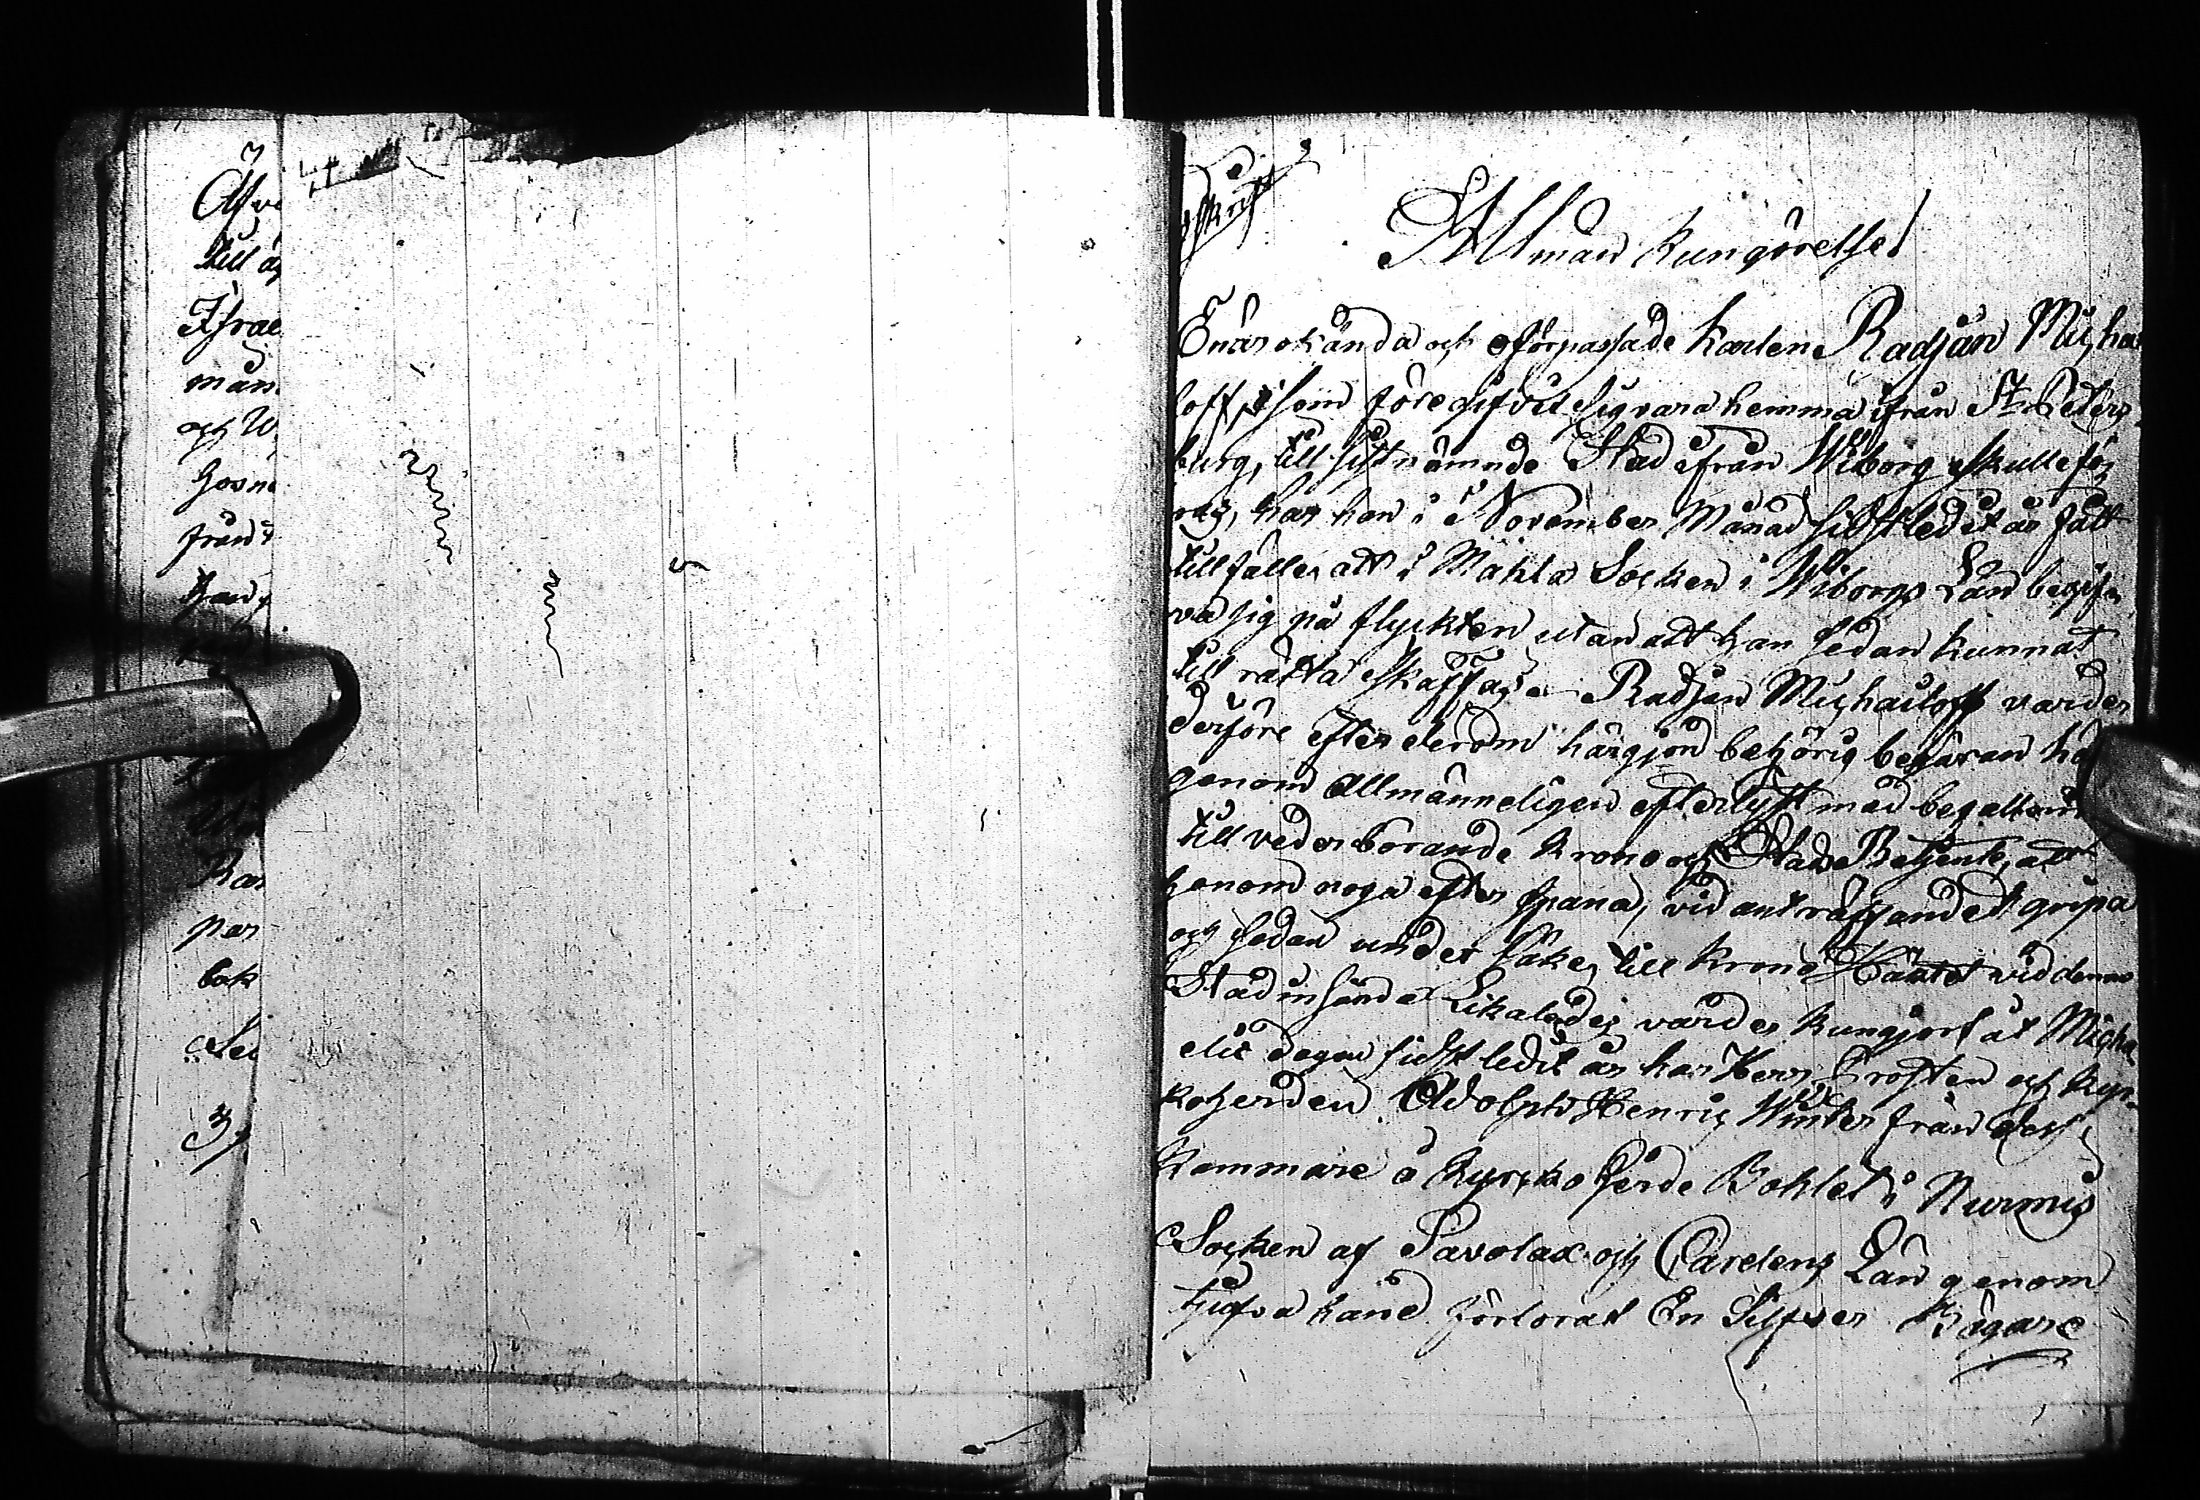 Afve
till äg
Israe
män
och W
Gosn
från
Ran
par
bok
Sei
Allmän Kungörelse!
Enär okända och oförpassade Karlen Radjan Micha
loff, som föregifvit sig vara hemma ifrån St. Peters
burg, till sistnämnde Stad ifrån Wiborg skulle för
ras, har han i November Månad sidstledit år fått
tillfälle att i Mohla Socken i Wiborgs Län begif
va sig på flyckten utan att han sedan kunnat
till rätta skaffas. Radjan Michailoff varder
derföre efter derom härgjord behörig begäran hä
genom Allmänneligen efterlyst med befallan
till vederborande Krono och Stads Betjente, att
honom noga efter spana, vid anträffandet gripa
och sedan under säker till Krono Häktet vid denna
Stad insända. Likaledes varder Kungjort at Micha
elis dagen sidstledit år har Herr Prosten och Kyr-
koherden Adolph Henric Winter från dess
Kammare å Kyrkoherde Bohlet i Nurmis
Socken af Savolax och Carelens Län genom
tjufva hand förlorat En Silfver Bägare